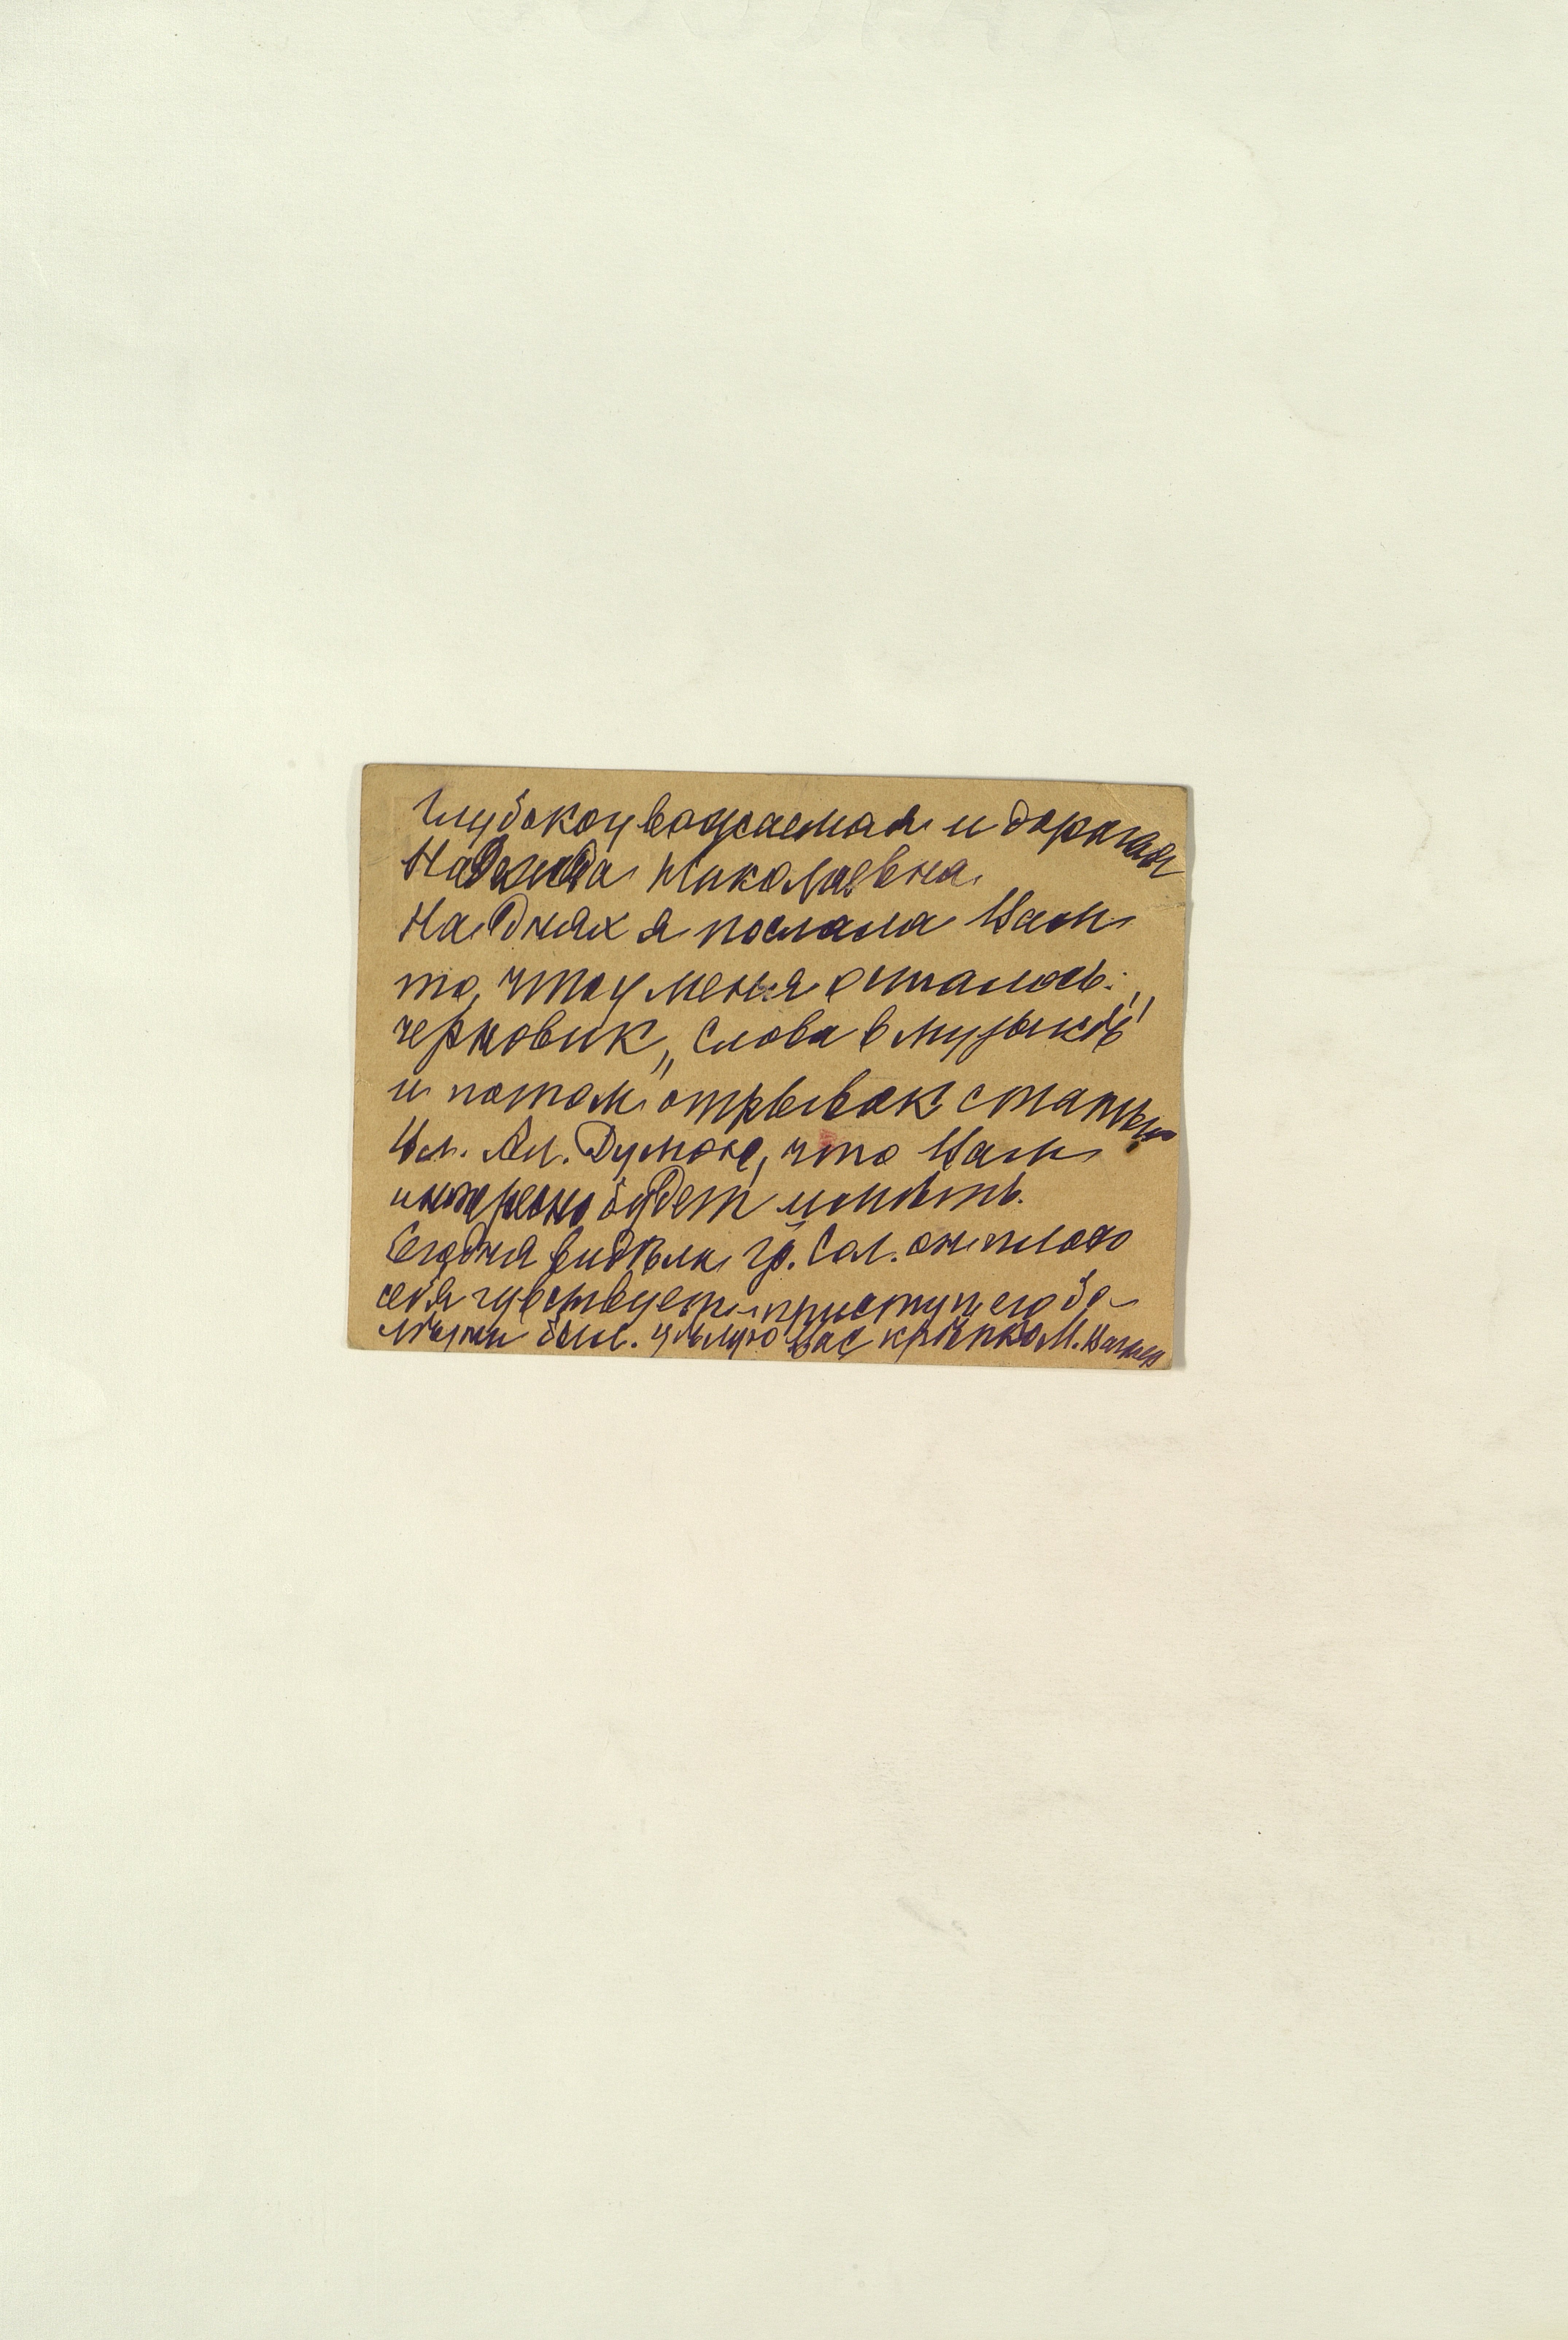 Глубокоуважаемая и дорогая
Надежда Николаевна.
На днях я послала Вам
то, что у меня осталось:
черновик „Слова в музыкѣ"
и потом отрывок статьи
Ал. Думаю, что Вам
интересно будет имѣть.
Сегодня видѣла Гр. Сал. он плохо
себя чувствует – приступ его бо-
лѣзни был. Цѣлую Вас крѣпко М.